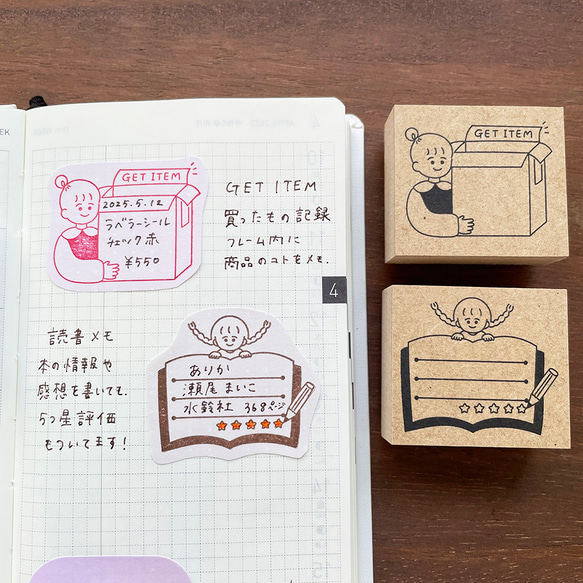 EEK
GET ITEM
2025.5.12
ラベラーシール
チェック赤
¥550
GET ITEM
買ったもの記録
フレーム内に
商品のコトをメモ.
4
読書メモ
本の情報や
感想を書いても.
5つ星評価
もついてます!
ありか
瀬尾まいこ
水鈴社 368ページ
GET ITEM